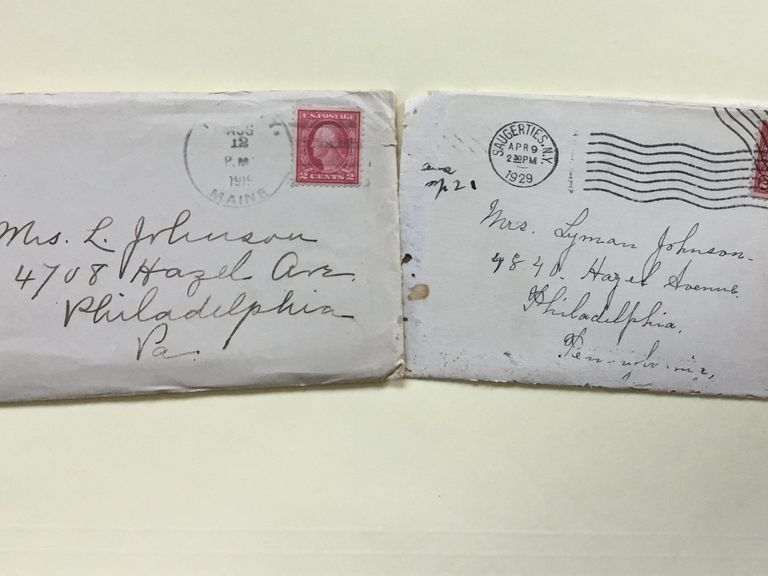 AUG
12
P.M
1919
MAINE
U.S. POSTAGE
2 CENTS 2
Mrs. L. Johnson
4708 Hazel Ave.
Philadelphia
Pa.
SAUGERTIES, N.Y.
APR 9
2 30 PM
1929
ans
Mrs. Lyman Johnson.
4840. Hazel Avenue.
Philadelphia.